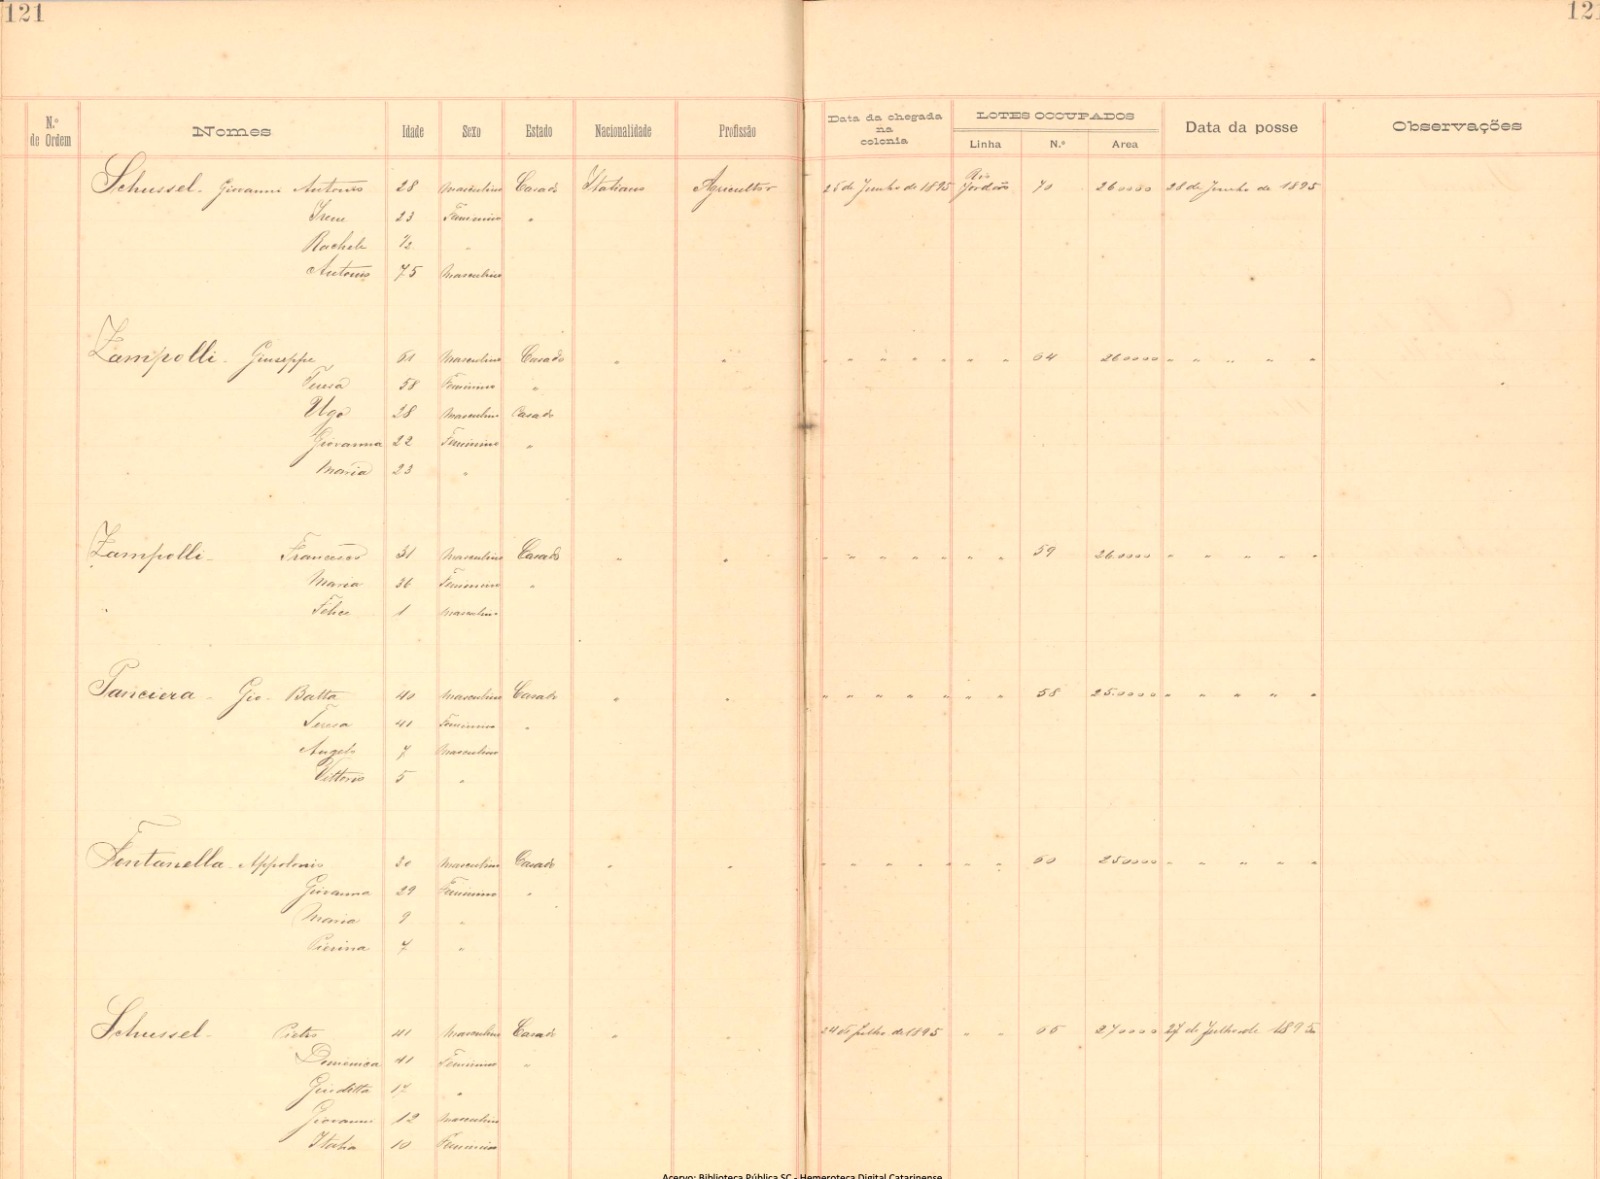 121
121
N.º de Ordem Nomes Idade Sexo Estado Nacionalidade Profissão Data da chegada na colonia LOTES OCCUPADOS Linha N.º Area Data da posse Observações
Schussel - Giovanni Antonio 28 Masculino Casado Italiano Agricultor 25 de Junho de 1895 Rio Jordão 70 260000 28 de Junho de 1895
Irene 23 Feminino "
Rachele 1/2 "
Antonio 75 Masculino
Zampolli - Giuseppe 61 Masculino Casado " " " " " " " " " 64 260000 " " " " "
Teresa 58 Feminino "
Ugo 28 Masculino Casado
Giovanna 22 Feminino "
Maria 23 "
Zampolli - Francesco 31 Masculino Casado " " " " " " " " " 59 260000 " " " " "
Maria 36 Feminino "
Felice 1 Masculino
Panciera - Gio. Batta 40 Masculino Casado " " " " " " " " " 58 250000 " " " " "
Teresa 41 Feminino "
Angelo 7 Masculino
Vittorio 5 "
Fontanella - Appolonio 30 Masculino Casado " " " " " " " " " 60 250000 " " " " "
Giovanna 29 Feminino "
Maria 9 "
Pierina 7 "
Schussel - Pietro 41 Masculino Casado " " 24 de Julho de 1895 " " 65 270000 27 de Julho de 1895
Domenica 41 Feminino "
Giuditta "
Giovanni 12 Masculino
Italia 10 Feminino
Acervo: Biblioteca Pública SC - Hemeroteca Digital Catarinense